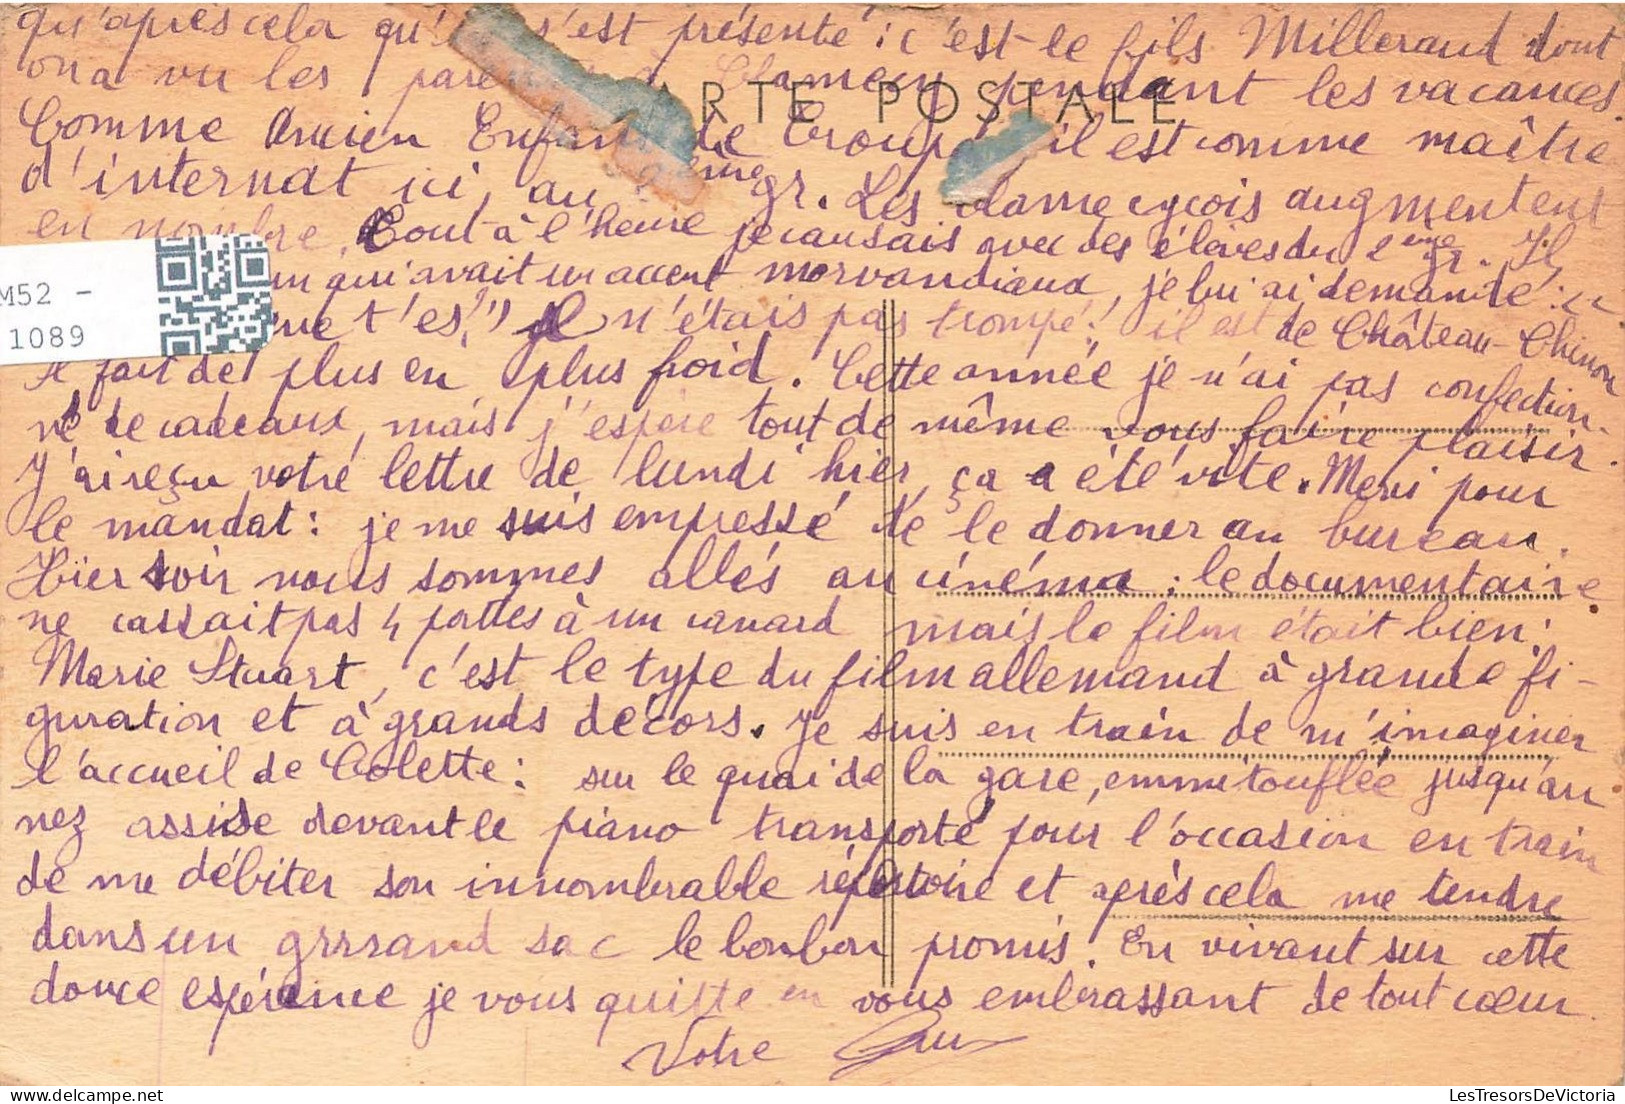 qu'après cela qu' s'est présenté : c'est le fils Millerand dont
on a vu les paren Clamecy pendant les vacances.
CARTE POSTALE
Comme Ancien Enfant de Troupe il est comme maître
d'internat ici, au ème gr. Les Clamecycois augmentent
en nombre. Tout à l'heure je causais avec des élèves du 2ème gr. Il
un qui avait un accent morvandiaux, je lui ai demandé : "
t'es" Je n'étais pas trompé : il est de Château-Chinon
Il fait de plus en plus froid. Cette année je n'ai pas confection-
né de cadeaux, mais j'espère tout de même vous faire plaisir.
J'ai reçu votre lettre de lundi hier, ça a été vite. Merci pour
le mandat : je me suis empressé de le donner au bureau.
Hier soir nous sommes allés au cinéma : le documentaire
ne cassait pas 4 pattes à un canard mais le film était bien :
Marie Stuart, c'est le type du film allemand à grande fi-
guration et à grands décors. Je suis en train de m'imaginer
l'accueil de Colette : sur le quai de la gare, emmitouflée jusqu'au
nez assise devant le piano transporté pour l'occasion en train
de me débiter son innombrable répertoire et après cela me tendre
dans un grrrand sac le bonbon promis. En vivant sur cette
douce espérance je vous quitte en vous embrassant de tout cœur.
Votre
M52 -
1089
LesTresorsDeVictoria